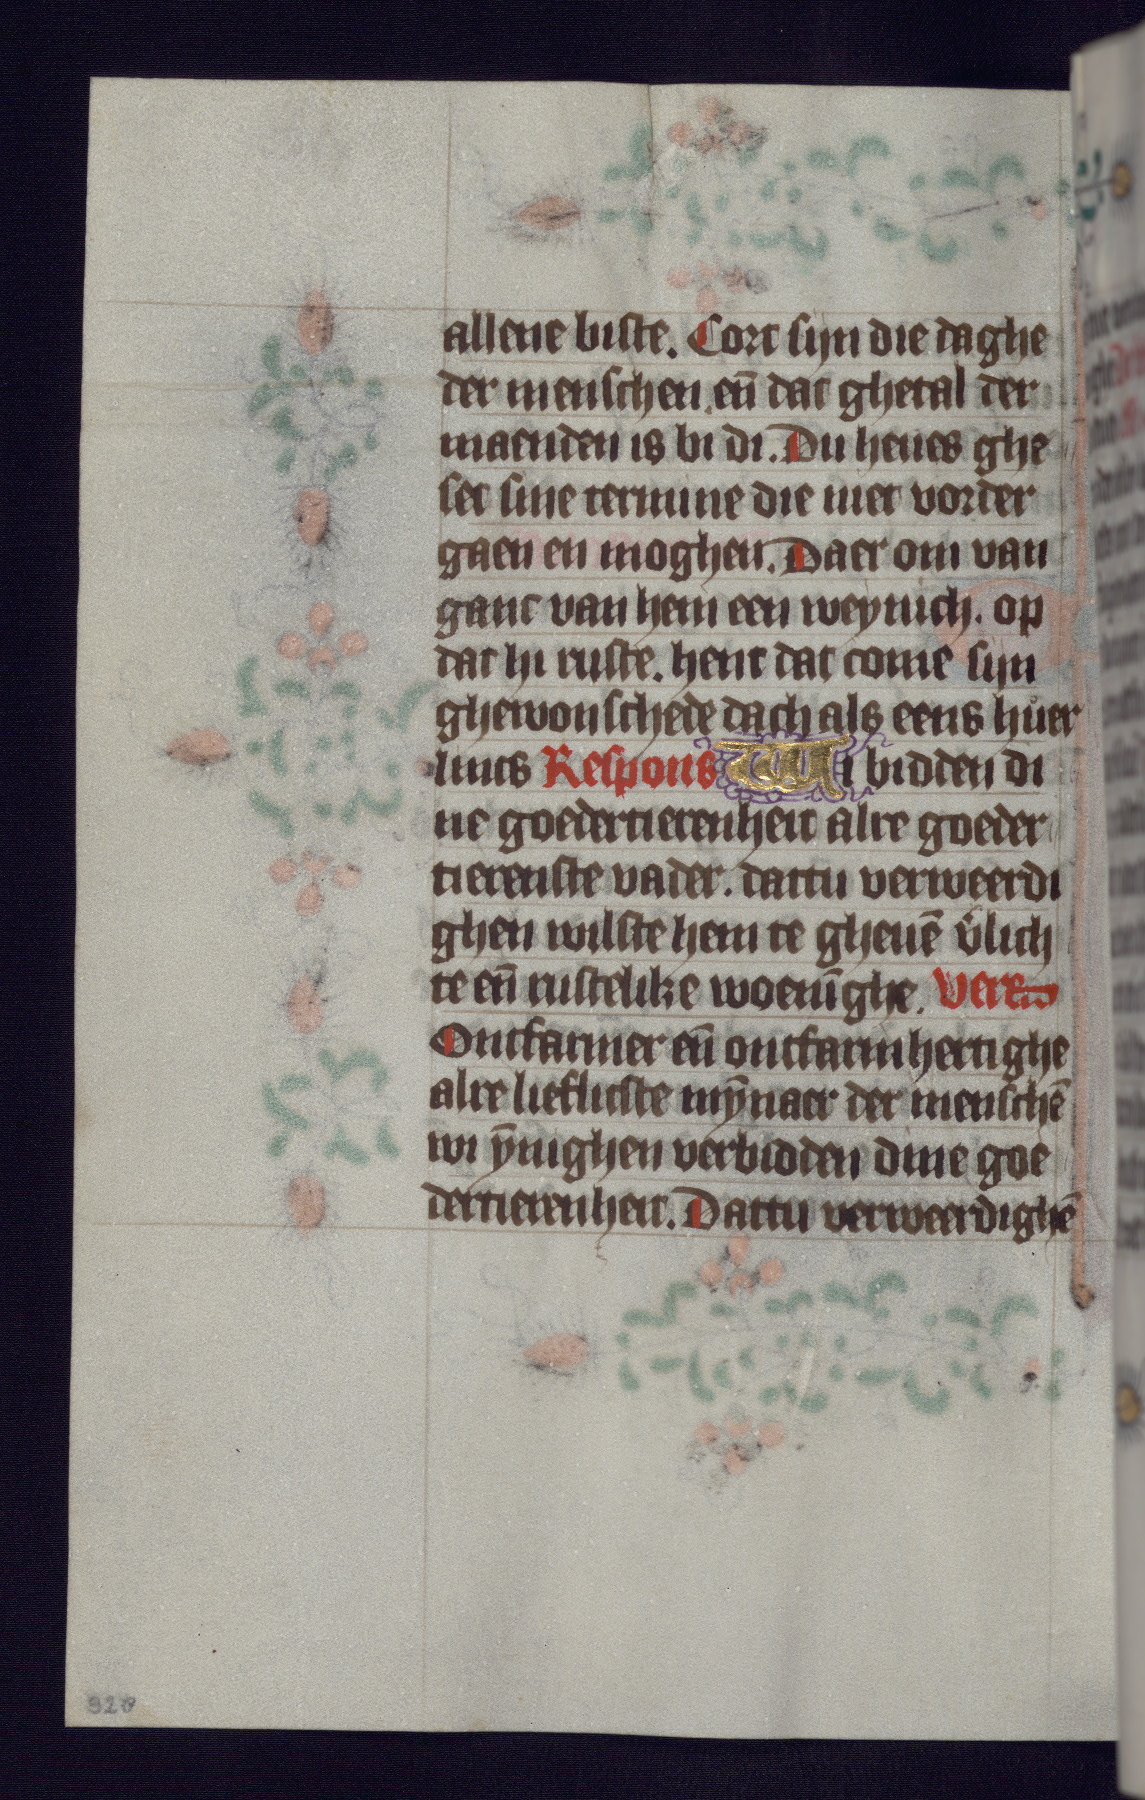 allene biste. Cort sijn die daghe
der menschen. eñ dat ghetal der
maenden is bi di. Du heues ghe
set sine termine die niet vorder
gaen en moghen. Daer om van
ganc van hem een weynich. op
dat hi ruste. hent dat come sijn
ghewonschede dach als eens huer
lincs Respons Wi bidden di
ne goedertierenheit alre goeder
tierenste vader. dattu verweerdi
ghen wilste hem te gheuē v̓lich
te eñ rustelike woenīghe. Vers
Ontfarmer eñ ontfarmhertighe
alre lieflicste mȳnaer der menschē
wi ȳnighen verbidden dine goe
dertierenheit. Dattu verweerdighē
92v